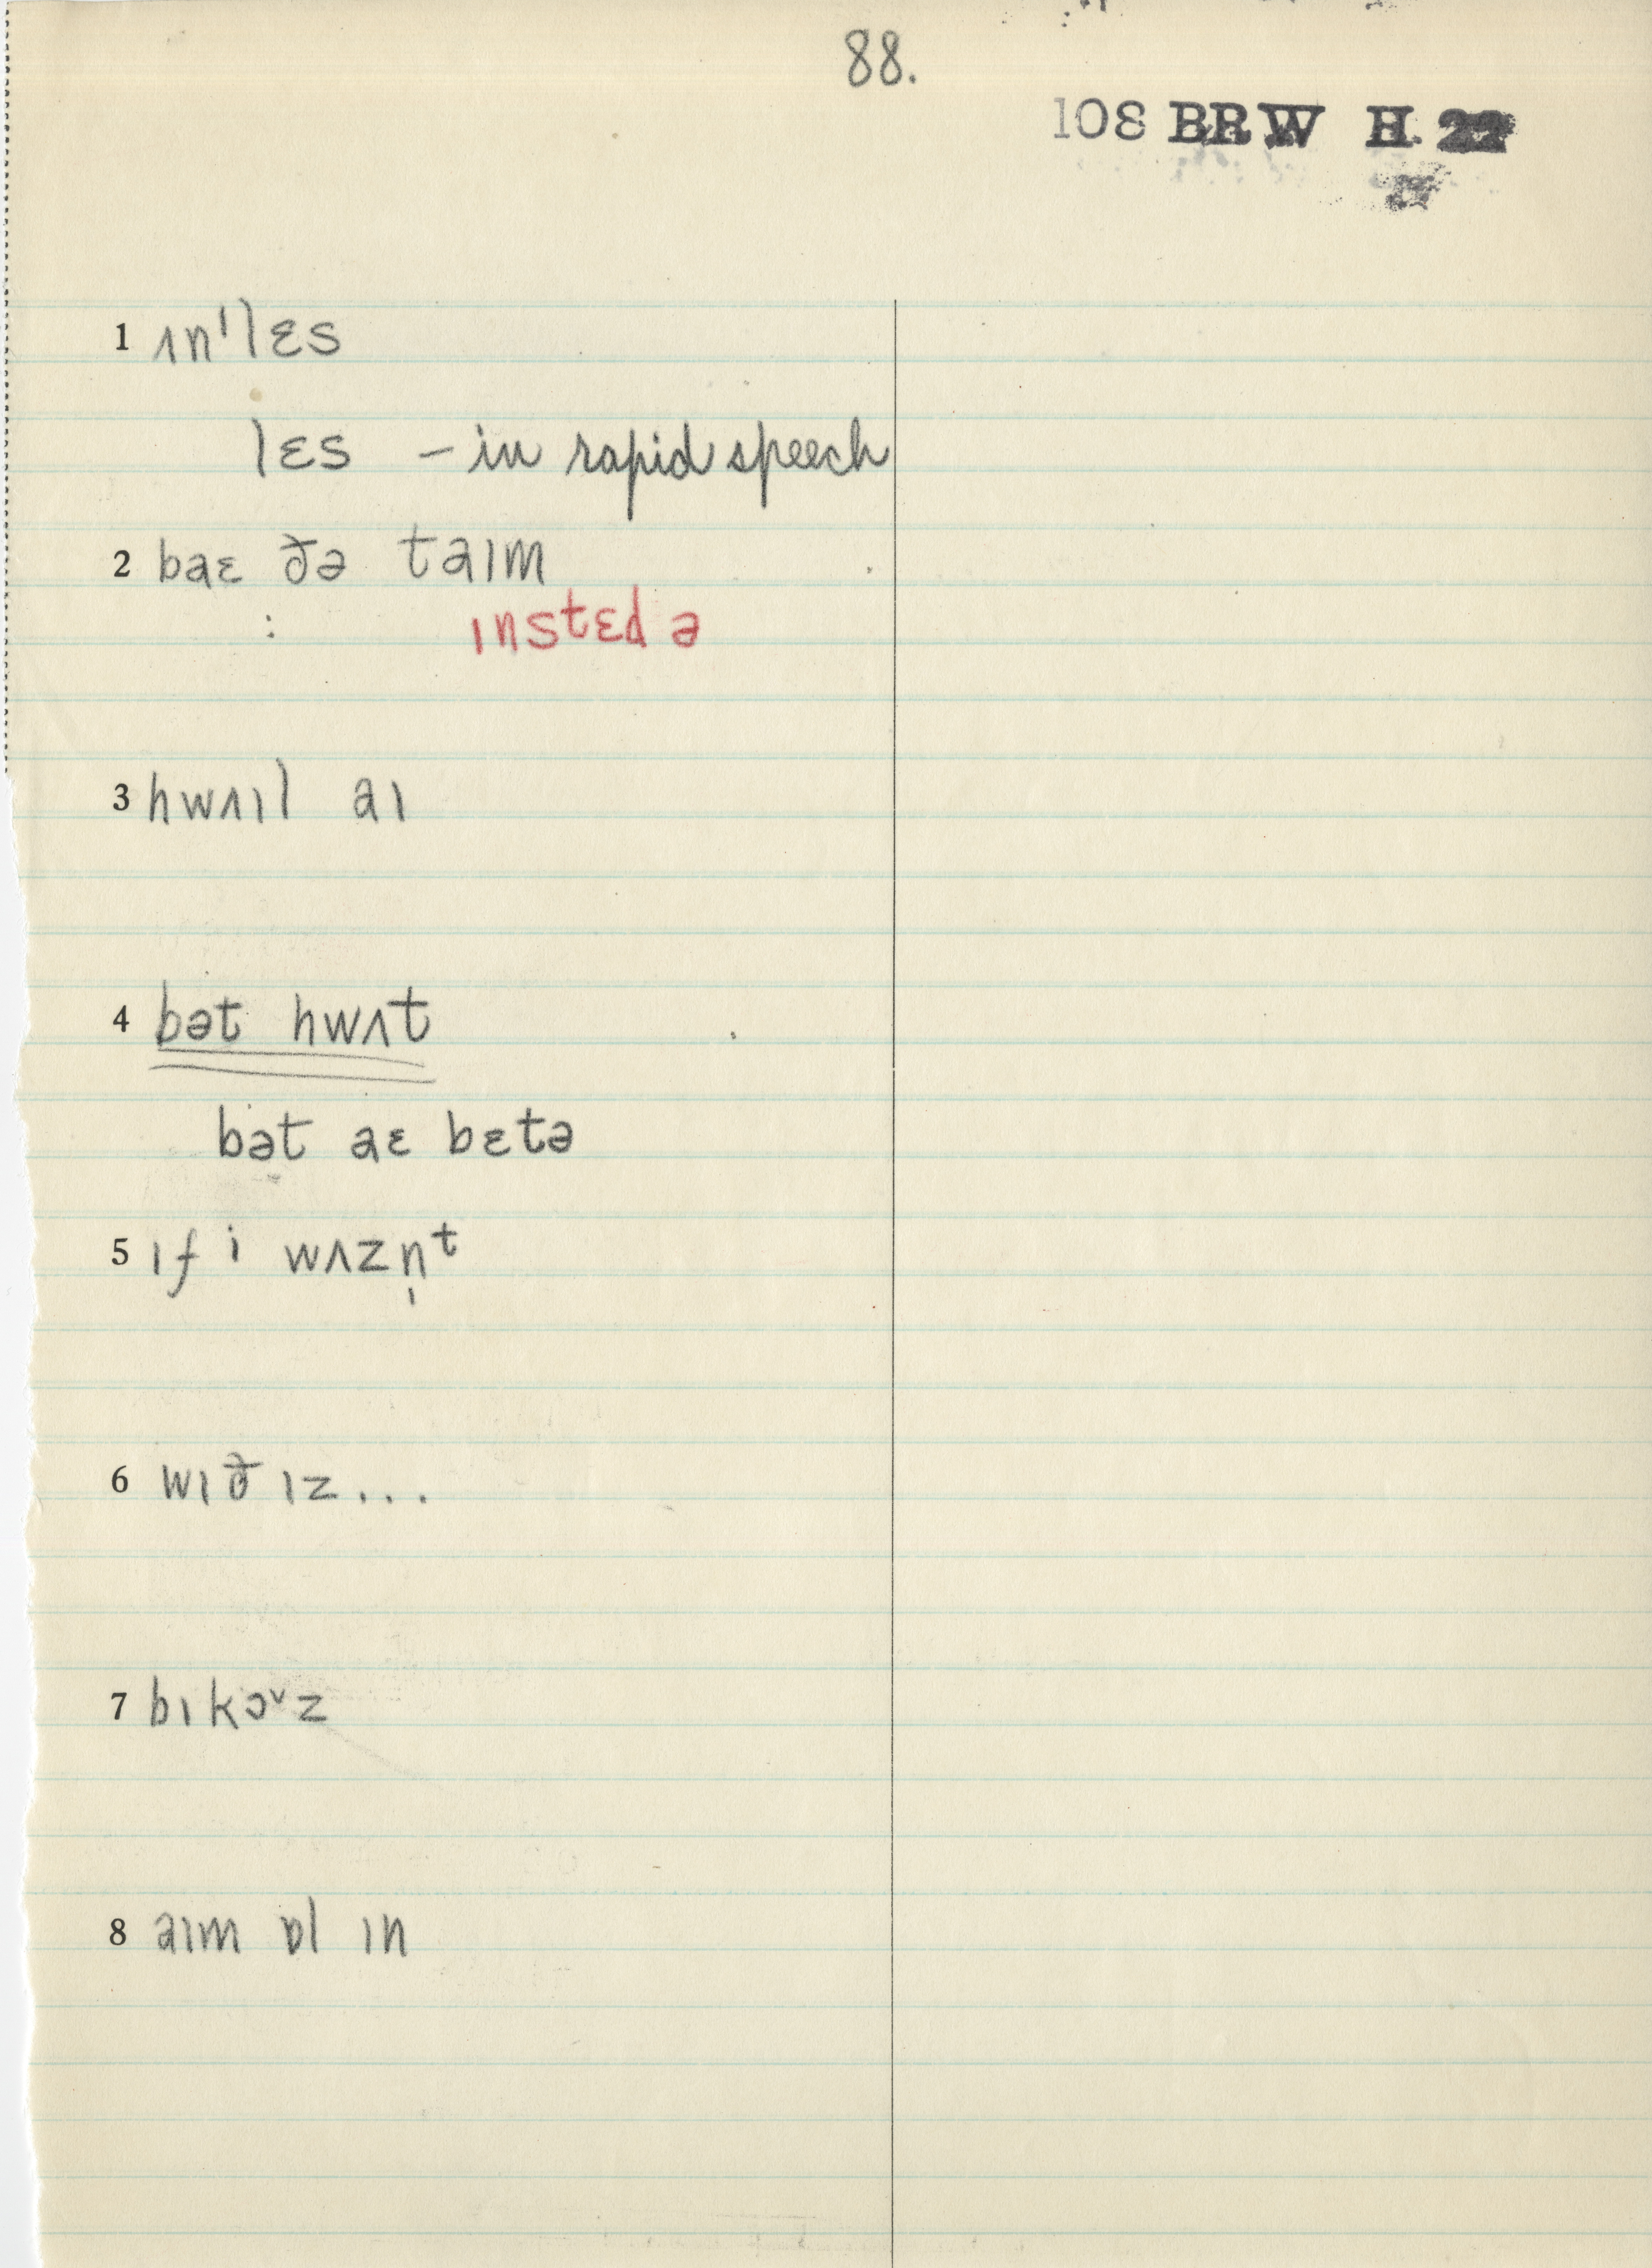 88.
108 BRW H. 22
1 ʌn'lɛs
lɛs – in rapid speech
2 baɛ ðə taɪm
ɪnstɛd ə
3 hwʌɪl aɪ
4 bət hwʌt
bət aɛ bɛtə
5 ɪf i wʌzn̩ᵗ
6 wɪð ɪz...
7 bɪkɔᵛz
8 aɪm ɒl ɪn